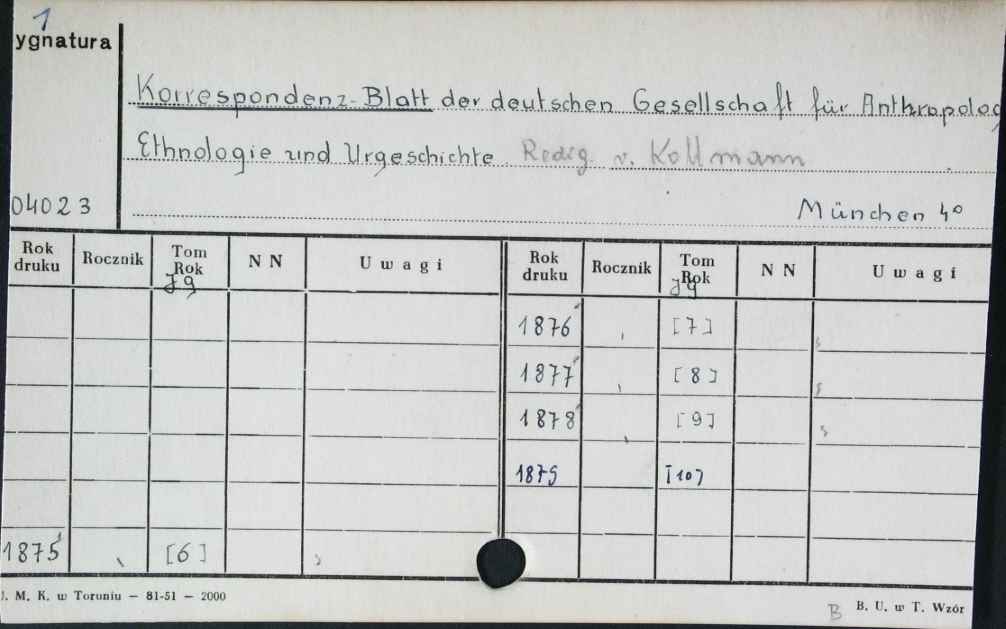 1
ygnatura
Korrespondenz-Blatt der deutschen Gesellschaft für Anthropolog
Ethnologie und Urgeschichte. Redig. v. Kollmann
04023
München 4°
Rok druku Rocznik Tom Rok Jg NN Uwagi Rok druku Rocznik Tom Rok Jg NN Uwagi
1876 [7]
1877 [8]
1878 [9]
1879 [10]
1875 [6]
J. M. K. w Toruniu — 81-51 — 2000
B B. U. w T. Wzór